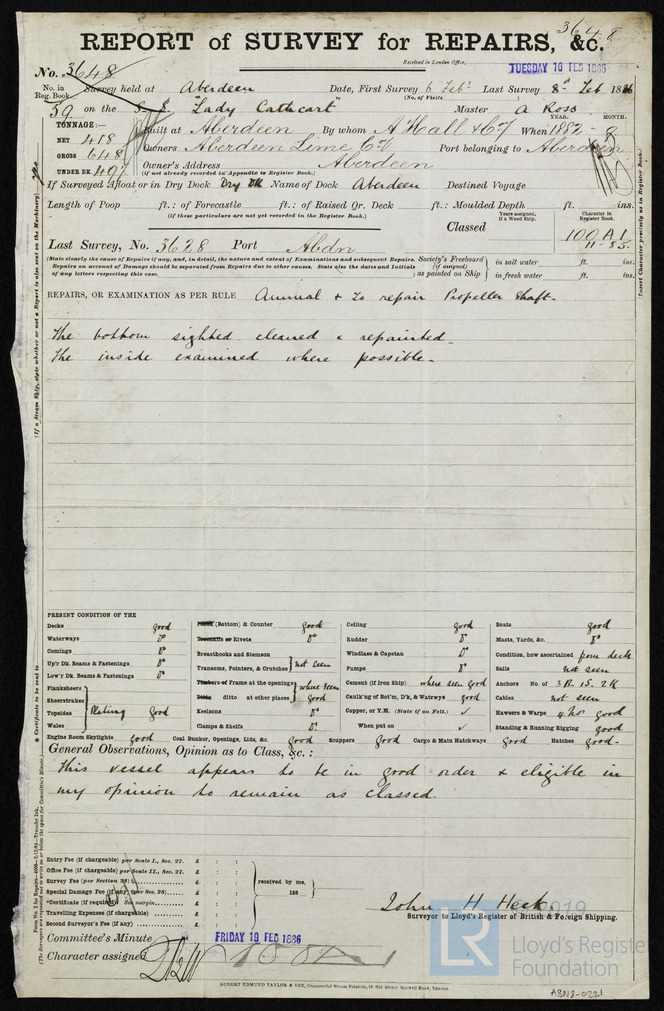 3648
REPORT of SURVEY for REPAIRS, &c.
Received in London Office, TUESDAY 16 FEB 1886
No. 3648
No. in Reg. Book. Survey held at Aberdeen Date, First Survey 6 Feb Last Survey 8 Feb 1886
(No. of Visits)
39 on the S.S. "Lady Cathcart" Master A Ross
TONNAGE:— Built at Aberdeen By whom A Hall & Co When 1882 - 8 YEAR. MONTH.
NET 418 Owners Aberdeen Lime Co Port belonging to Aberdeen
GROSS 648 Owner's Address Aberdeen
UNDER DK. 407 (if not already recorded in Appendix to Register Book.)
If Surveyed Afloat or in Dry Dock Dry Dk Name of Dock Aberdeen Destined Voyage
Length of Poop ft.: of Forecastle ft.: of Raised Qr. Deck ft.: Moulded Depth ft. ins.
(if these particulars are not yet recorded in the Register Book.)
Years assigned, if a Wood Ship. Character in Register Book.
Classed 100 A1 11-85
Last Survey, No. 3628 Port Abdn
(State clearly the cause of Repairs if any, and, in detail, the nature and extent of Examinations and subsequent Repairs.
Repairs on account of Damage should be separated from Repairs due to other causes. State also the dates and Initials
of any letters respecting this case.)
Society's Freeboard (if assigned) as painted on Ship in salt water ft. ins.
in fresh water ft. ins.
REPAIRS, OR EXAMINATION AS PER RULE Annual & to repair Propeller Shaft.
The bottom sighted cleaned & repainted.
The inside examined where possible.
PRESENT CONDITION OF THE
Decks good
Waterways Do
Comings Do
Up'r Dk. Beams & Fastenings Do
Low'r Dk. Beams & Fastenings Do
Planksheers
Sheerstrakes
Topsides
Wales
Plating good
Engine Room Skylights good
Plank (Bottom) & Counter good
Treenails or Rivets Do
Breasthooks and Stemson
Transoms, Pointers, & Crutches not seen
Timbers of Frame at the openings
Ditto ditto at other places where seen good
Keelsons Do
Clamps & Shelfs Do
Coal Bunker, Openings, Lids, &c. good
Ceiling good
Rudder Do
Windlass & Capstan Do
Pumps Do
Cement (if Iron Ship) where seen good
Caulk'ng of Bot'm, D'k, & Watrwys good
Copper, or Y.M. (State if on Felt.) ✓
When put on ✓
Scuppers good Cargo & Main Hatchways good
Boats good
Masts, Yards, &c. Do
Condition, how ascertained from deck
Sails not seen
Anchors No. of 3 B. 1S. 2K
Cables not seen
Hawsers & Warps 4 No good
Standing & Running Rigging good
Hatches good
General Observations, Opinion as to Class, &c.:
This vessel appears to be in good order & eligible in
my opinion to remain as classed.
Entry Fee (if chargeable) per Scale I., Sec. 27. £ : :
Office Fee (if chargeable) per Scale II., Sec. 27. £ : :
Survey Fee (per Section 28) £ : :
Special Damage Fee (if any) (per Sec. 28) £ : :
*Certificate (if required) See margin £ : :
Travelling Expenses (if chargeable) £ : :
Second Surveyor's Fee (if any) £ : :
received by me, 188
John H Heck.
Surveyor to Lloyd's Register of British & Foreign Shipping.
Committee's Minute FRIDAY 19 FEB 1886
Character assigned 100A1
ROBERT EDMUND TAYLOR & SON, Commercial Steam Printers, 19 Old Street, Goswell Road, London
ABN18-0221
LR
2019
Lloyd's Registe
Foundation
(If a Steam Ship, state whether or not a Report is also sent on the Machinery)
(Insert Character precisely as in Register Book.)
* Certificate to be sent to